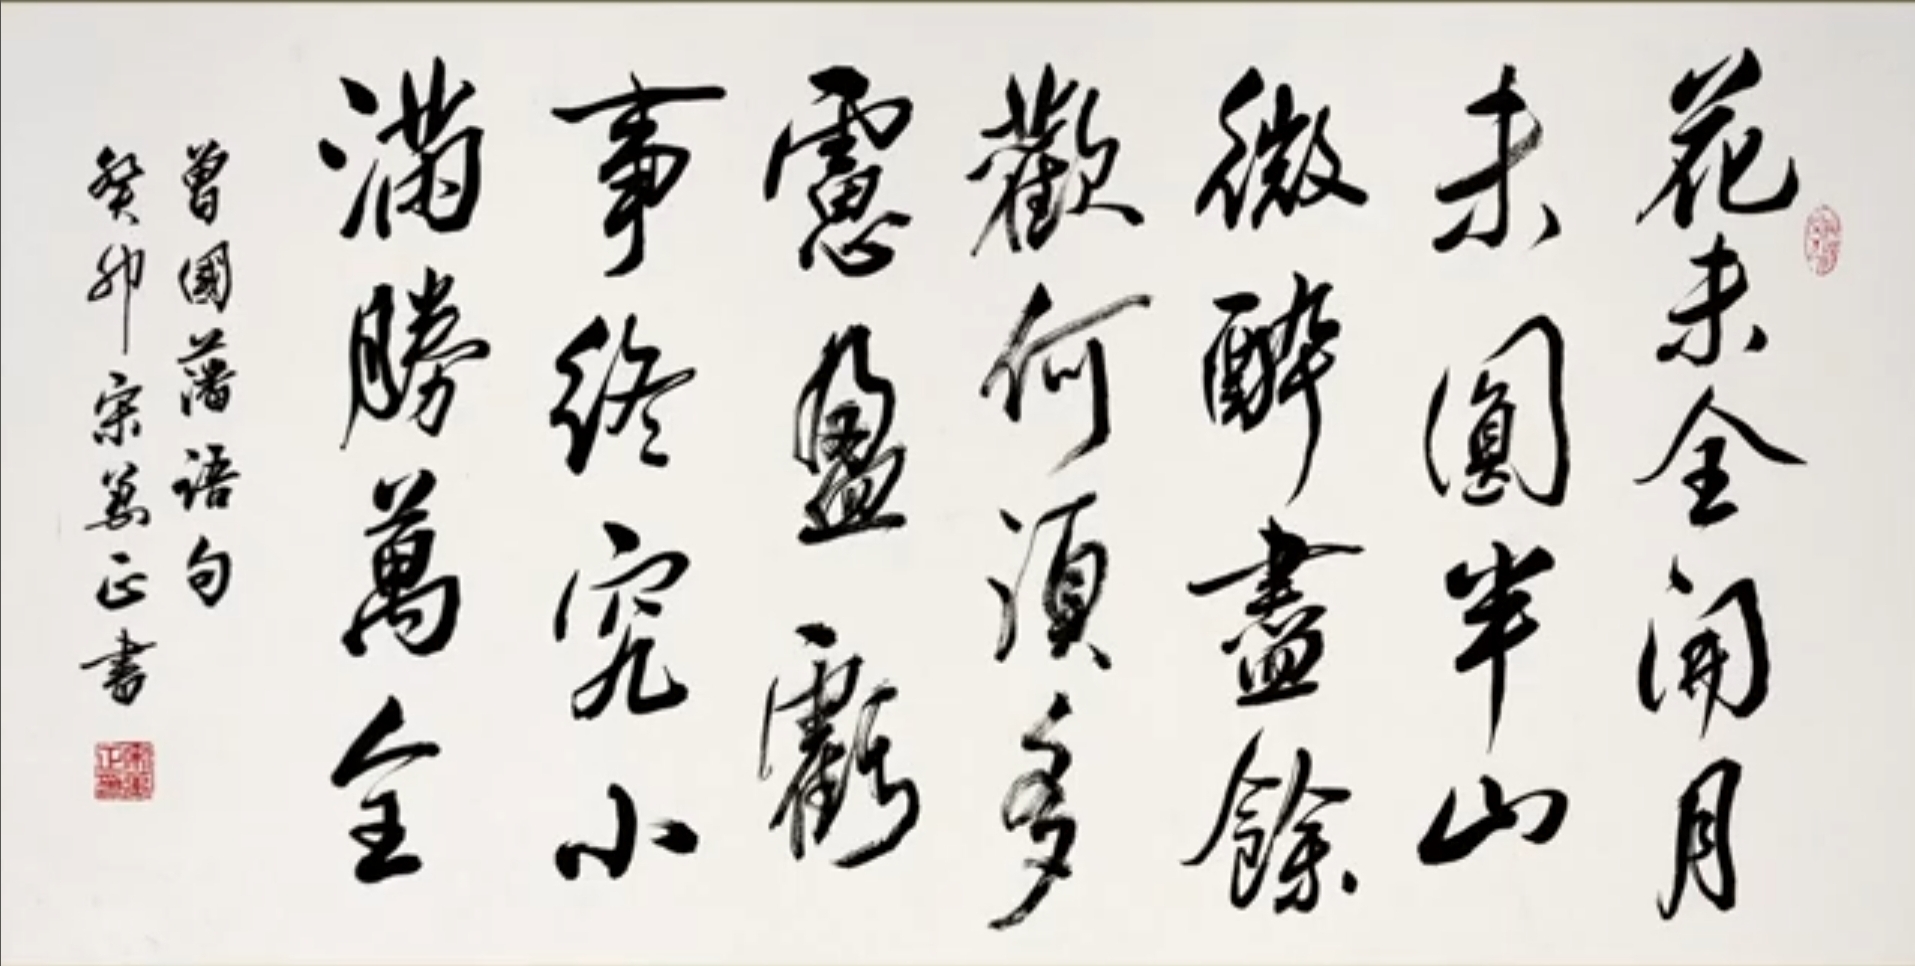 花未全開月
未圓半山
微醉盡餘
歡何須多
慮盈虧
事終究小
滿勝萬全
曾國藩語句
癸卯宋正書